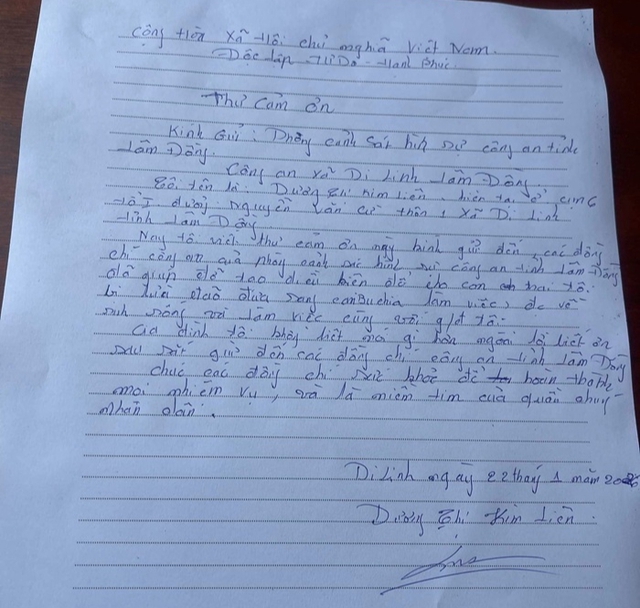 Cộng Hòa Xã Hội chủ nghĩa Việt Nam.
Độc lập - Tự Do - Hạnh Phúc
Thư Cảm ơn
Kính Gửi: Phòng cảnh sát hình sự công an tỉnh
Lâm Đồng.
Công an xã Di Linh Lâm Đồng
Tôi tên là: Dương Thị Kim Liên, hiện tại ở
tổ 1 đường Nguyễn Văn Cừ thôn 1 xã Di Linh
tỉnh Lâm Đồng
Nay tôi viết thư cảm ơn này kính gửi đến, các đồng
chí công an phòng cảnh sát hình sự công an tỉnh Lâm Đồng
đã giúp đỡ tạo điều kiện để cho con trai tôi.
bị lừa đưa sang cambuchia làm việc, đc về
sinh sống và làm việc cùng với g/đ tôi.
Gia đình tôi không biết nói gì hơn ngoài lời biết ơn
sâu sắt gửi đến các đồng chí công an tỉnh Lâm Đồng
chúc các đồng chí sức khỏe để hoàn thành
mọi nhiệm vụ, và là niềm tin của quần chúng
nhân dân.
Di Linh ngày 22 tháng 1 năm 2026
Dương Thị Kim Liên.